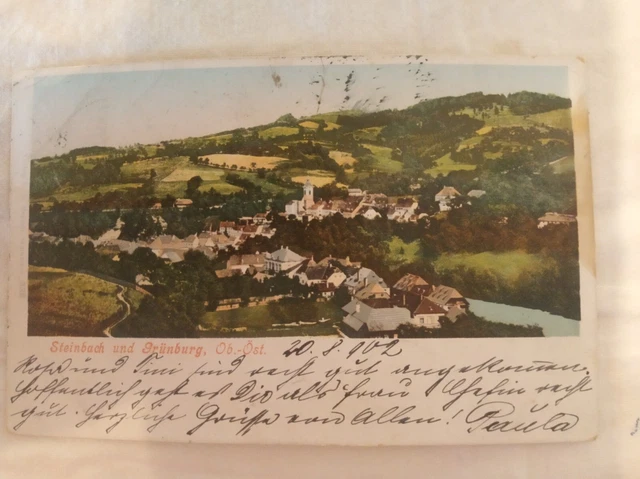 Steinbach und Grünburg, Ob.-Öst. 20.8.902
Rosa und Tini sind recht gut angekommen.
Hoffentlich geht es Dir als Frau Chefin recht
gut. Herzliche Grüsse von Allen! Paula